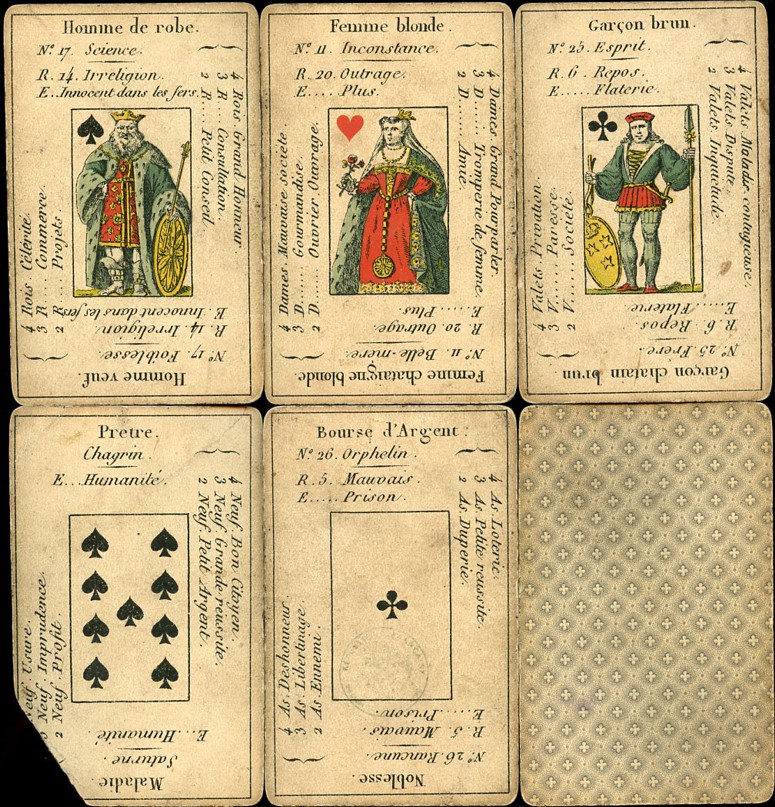 Homme de robe.
N.º 17. Science.
R. 14. Irreligion.
E..Innocent dans les fers.
4 Rois. Grand Honneur
3 R.... Consultation.
2 R.... Petit Conseil.
4 Rois Célérité.
3 R.... Commerce.
2 R.... Projets.
Homme veuf.
N.º 17. Foiblesse.
R. 14. Irreligion.
E. Innocent dans les fers.
Femme blonde.
N.º 11. Inconstance.
R. 20. Outrage.
E..... Plus.
4 Dames Grand Pourparler
3 D....... Tromperie de femme.
2 D....... Amie.
4 Dames Mauvaise société
3 D....... Gourmandise.
2 D....... Ouvrier Ouvrage.
Femme chataigne blonde.
N.º 11. Belle-mere.
R. 20. Outrage.
E..... Plus.
Garçon brun.
N.º 25. Esprit.
R. 6. Repos.
E...... Flaterie.
4 Valets Maladie contagieuse.
3 Valets Dispute.
2 Valets Inquietude.
4 Valets Privation
3 V....... Paresse.
2 V....... Société.
Garçon chatain brun
N.º 25 Frere.
R. 6. Repos
E...... Flaterie.
Pretre.
Chagrin.
E...Humanité.
4 Neuf. Bon Citoyen.
3 Neuf. Grande reussite.
2 Neuf. Petit Argent.
Neuf. Usure.
Neuf Imprudence.
2 Neuf. Profit.
Maladie.
Saturne.
E...Humanité
Bourse d'Argent.
N.º 26. Orphelin.
R. 5. Mauvais.
E..... Prison.
4 As. Loterie.
3 As. Petite reussite.
2 As. Duperie.
4 As Deshonneur
3 As Libertinage.
2 As Ennemi
Noblesse.
N.º 26 Rancune.
R. 5. Mauvais.
E..... Prison.